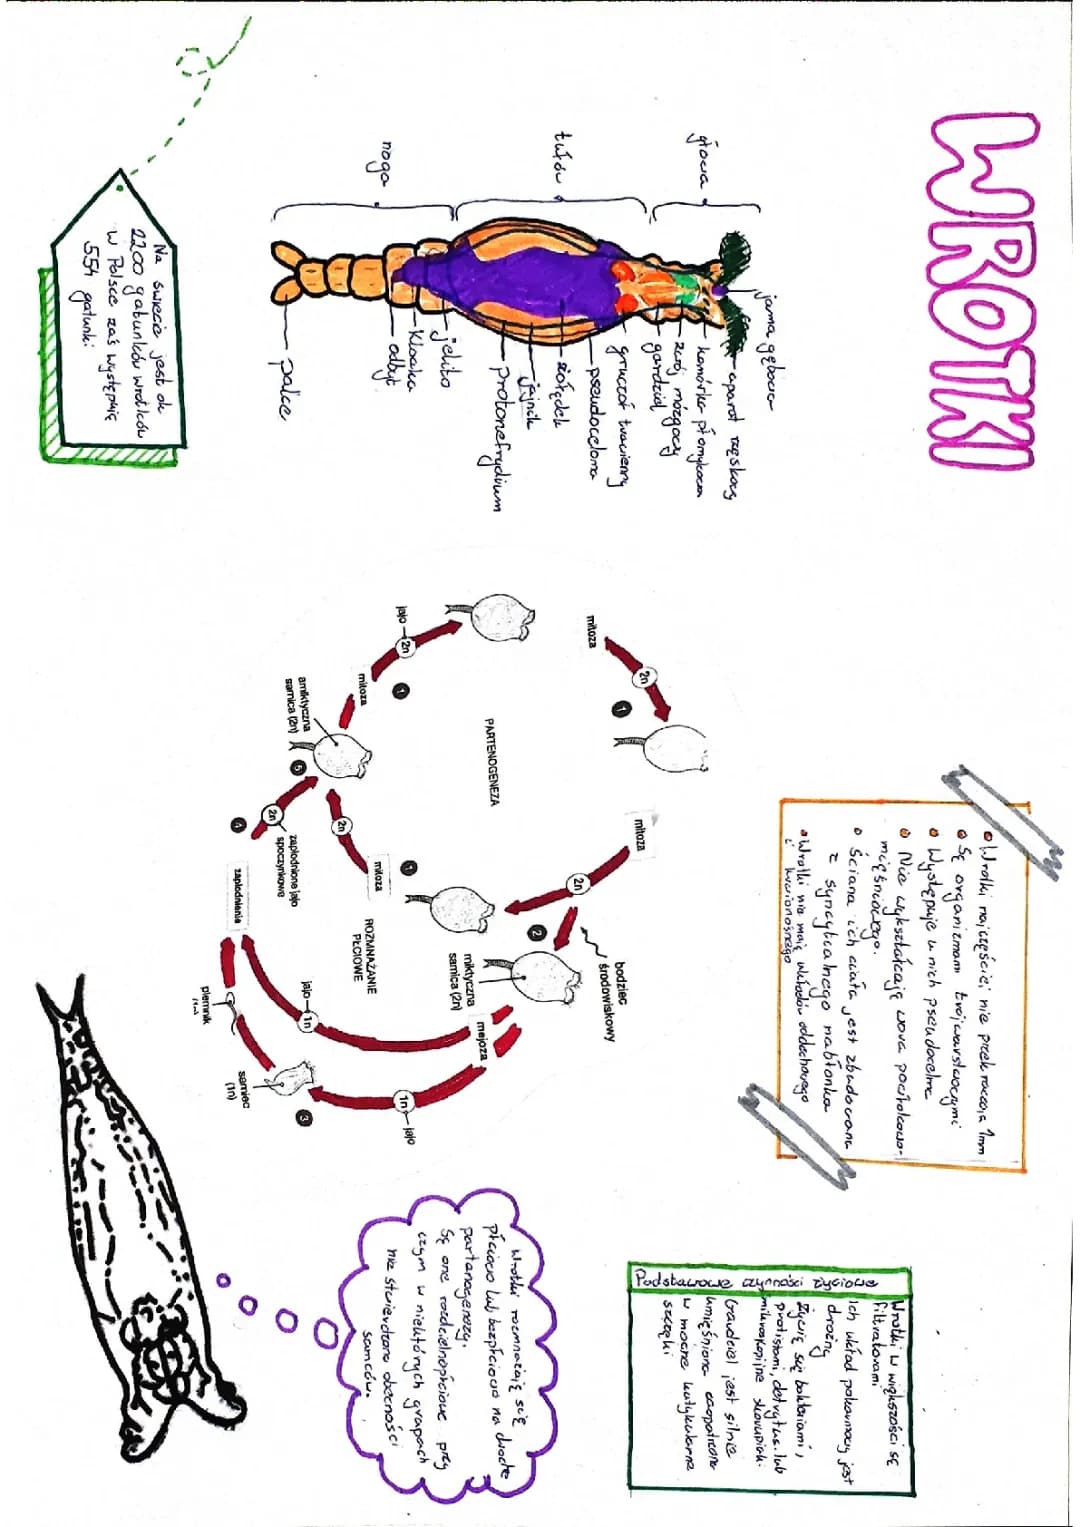 WROTKI
głowa
tułów
noga
jama gębowa
aparat rzęskowy
komórka płomykowa
zwój mózgowy
gardziel
gruczoł trawienny
pseudoceloma
żołądek
jajnik
protonefrydium
jelito
kloaka
odbyt
palce
Na świecie jest ok
2200 gatunków wrotków
w Polsce zaś występuje
554 gatunki
• Wrotki najczęściej nie przekraczają 1mm
• Są organizmami trójwarstwowymi
• Występuje u nich pseudocelma
• Nie wykształcają wora powłokowo-
mięśniowego.
• Ściana ich ciała jest zbudowana
z syncytialnego nabłonka
• Wrotki nie mają układów oddechowego
i krwionośnego
mitoza
2n
1
PARTENOGENEZA
jajo
2n
mitoza
1
amiktyczna
samica (2n)
5
mitoza
2n
2n
mitoza
1
2
bodziec
środowiskowy
miktyczna
samica (2n)
ROZMNAŻANIE
PŁCIOWE
4
2n
zapłodnione jajo
spoczynkowe
zapłodnienie
mejoza
jajo
1n
1n
jajo
plemnik
samiec
(1n)
3
Podstawowe czynności życiowe
Wrotki w większości są
filtratorami
Ich układ pokarmowy jest
drożny
żywią się bakteriami,
protistami, detrytus. lub
mikroskopijne skorupiaki.
Gardziel jest silnie
umięśniona zaopatrzona
w mocne kutykularne
szczęki
Wrotki rozmnażają się
płciowo lub bezpłciowo na drodze
partenogenezy.
Są one rozdzielnopłciowe przy
czym w niektórych grupach
nie stwierdzono obecności
samców.